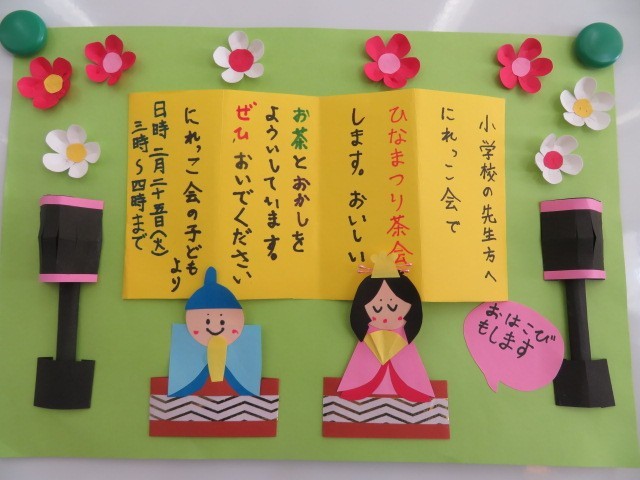 小学校の先生方へ
にれっこ会で
ひなまつり茶会
します。おいしい
お茶とおかしを
よういしています。
ぜひ、おいでください
にれっこ会の子ども
より
日時 二月二十五日(火)
三時〜四時まで
おはこび
もします